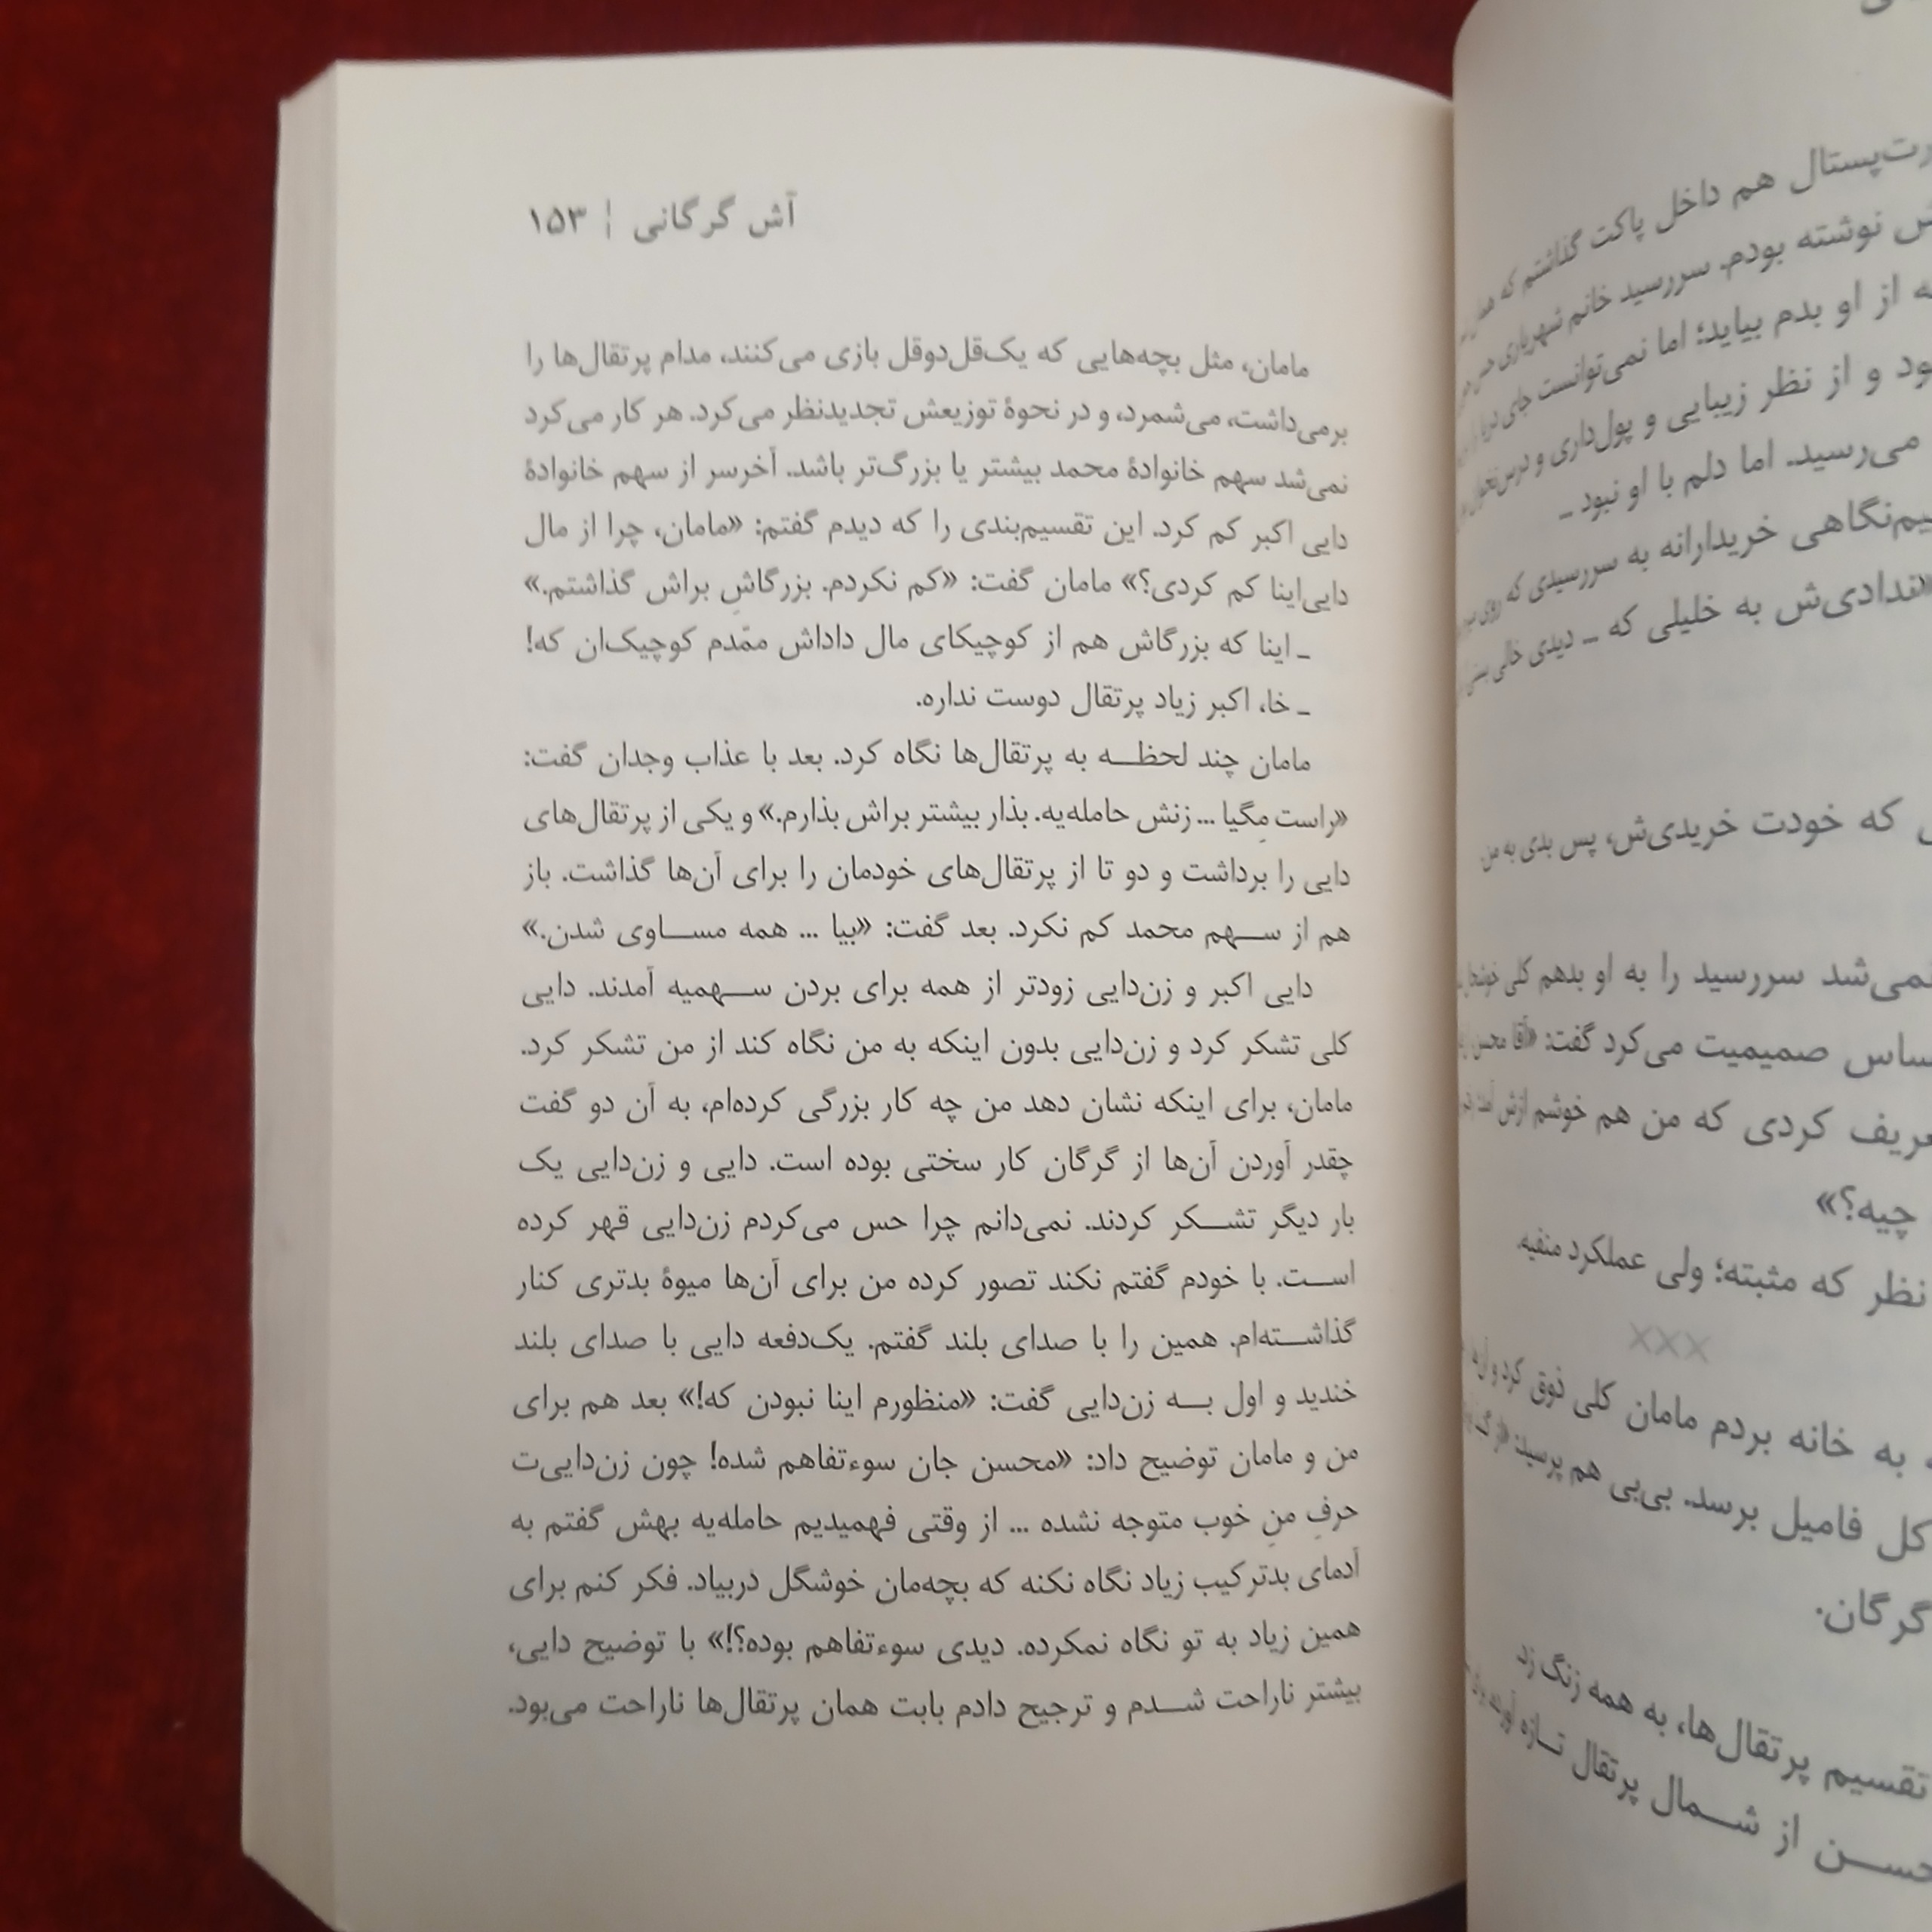 آش گرگانی | ۱۵۳
مامان، مثل بچه‌هایی که یک‌قل‌دوقل بازی می‌کنند، مدام پرتقال‌ها را
برمی‌داشت، می‌شمرد، و در نحوهٔ توزیعش تجدیدنظر می‌کرد. هر کار می‌کرد
نمی‌شد سهم خانوادهٔ محمد بیشتر یا بزرگ‌تر باشد. آخرسر از سهم خانوادهٔ
دایی اکبر کم کرد. این تقسیم‌بندی را که دیدم گفتم: «مامان، چرا از مال
دایی‌اینا کم کردی؟» مامان گفت: «کم نکردم. بزرگاشِ براش گذاشتم.»
ـ اینا که بزرگاش هم از کوچیکای مال داداش ممّدم کوچیک‌ان که!
ـ خا، اکبر زیاد پرتقال دوست نداره.
مامان چند لحظـــه به پرتقال‌ها نگاه کرد. بعد با عذاب وجدان گفت:
«راست مِگیا ... زنش حامله‌یه. بذار بیشتر براش بذارم.» و یکی از پرتقال‌های
دایی را برداشت و دو تا از پرتقال‌های خودمان را برای آن‌ها گذاشت. باز
هم از ســـهم محمد کم نکرد. بعد گفت: «بیا ... همه مســـاوی شدن.»
دایی اکبر و زن‌دایی زودتر از همه برای بردن ســـهمیه آمدند. دایی
کلی تشکر کرد و زن‌دایی بدون اینکه به من نگاه کند از من تشکر کرد.
مامان، برای اینکه نشان دهد من چه کار بزرگی کرده‌ام، به آن دو گفت
چقدر آوردن آن‌ها از گرگان کار سختی بوده است. دایی و زن‌دایی یک
بار دیگر تشـــکر کردند. نمی‌دانم چرا حس می‌کردم زن‌دایی قهر کرده
اســـت. با خودم گفتم نکند تصور کرده من برای آن‌ها میوهٔ بدتری کنار
گذاشـــته‌ام. همین را با صدای بلند گفتم. یک‌دفعه دایی با صدای بلند
خندید و اول بـــه زن‌دایی گفت: «منظورم اینا نبودن که!» بعد هم برای
من و مامان توضیح داد: «محسن جان سوءتفاهم شده! چون زن‌دایی‌ت
حرفِ منِ خوب متوجه نشده ... از وقتی فهمیدیم حامله‌یه بهش گفتم به
آدمای بدترکیب زیاد نگاه نکنه که بچه‌مان خوشگل دربیاد. فکر کنم برای
همین زیاد به تو نگاه نمکرده. دیدی سوءتفاهم بوده؟!» با توضیح دایی،
بیشتر ناراحت شـــدم و ترجیح دادم بابت همان پرتقال‌ها ناراحت می‌بود.
هم داخل پاکت گذاشتم که
نوشته بودم. سررسید خانم شهریاری
از او بدم بیاید؛ اما نمی‌توانست جای
و از نظر زیبایی و پول‌داری و
می‌رسید. اما دلم با او نبود ـ
خریدارانه به سررسیدی که روی
«ندادی‌ش به خلیلی که ـ دیدی خالی
که خودت خریدی‌ش، پس بدی به من
نمی‌شد سررسید را به او بدهم کلی
صمیمیت می‌کرد گفت: «آقا محسن
کردی که من هم خوشم ازش
چیه؟»
نظر که مثبته؛ ولی عملکرد منفیه.
×××
به خانه بردم مامان کلی ذوق کرد و
کل فامیل برسد. بی‌بی هم پرسید:
گرگان.
تقسیم پرتقال‌ها، به همه زنگ زد
از شـــمال پرتقال تـــازه